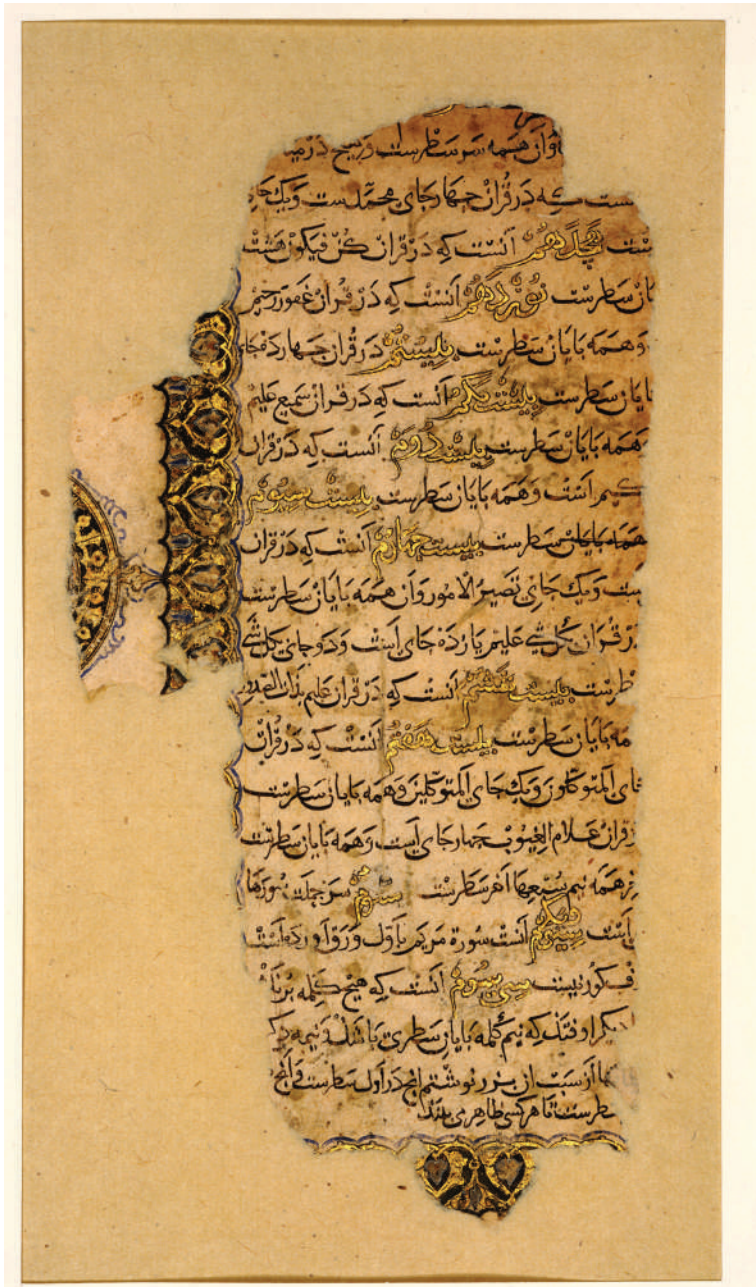 وآن همه سر سطرست و پنج در میا
ست که در قرآن چهار جای محمدست و یک جای
ست هجدهم آنست که در قرآن کن فیکون هشت
پایان سطرست نوزدهم آنست که در قرآن غفور رحیم
و همه بایان سطرست بیستم در قرآن چهارده جای
بایان سطرست بیست یکم آنست که در قرآن سمیع علیم
همه بایان سطرست بیست دوم آنست که در قرآن
کیم است و همه بایان سطرست بیست سوم
همه بایان سطرست بیست چهارم آنست که در قرآن
ست و یک جای تصیر الامور وآن همه بایان سطرست
در قرآن کل شیء علیم یازده جای است و دو جای کل شیء
طرست بیست ششم آنست که در قرآن علیم بذات الصدور
مه بایان سطرست بیست هفتم آنست که در قرآن
جای المتوکلون و یک جای المتوکلین و همه بایان سطرست
در قرآن علام الغیوب چهار جای است و همه بایان سطرست
همه نیم سبعها آخر سطرست سر جملت سورها
است آنست سورة مریم باول ورق آورده است
ف کور نیست سی سوم آنست که هیچ کلمه برنا
دیگر اوفتذ که نیم کلمه بایان سطری باشذ و نیمه دیگر
ها از سبب آن نوشتم آنچ در اول سطرست و آنچ
سطرست تا هر کسی ظاهر می بیند